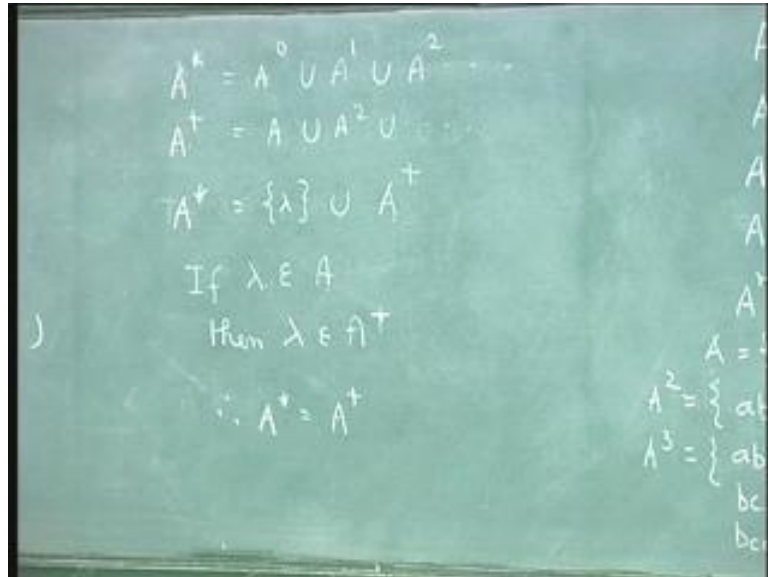 A* = A⁰ ∪ A¹ ∪ A² ....
A⁺ = A ∪ A² ∪ ....
A* = {λ} ∪ A⁺
If λ ∈ A
then λ ∈ A⁺
∴ A* = A⁺
)
A
A
A
A
A
A =
A² = { ab
A³ = { ab
bc
bc